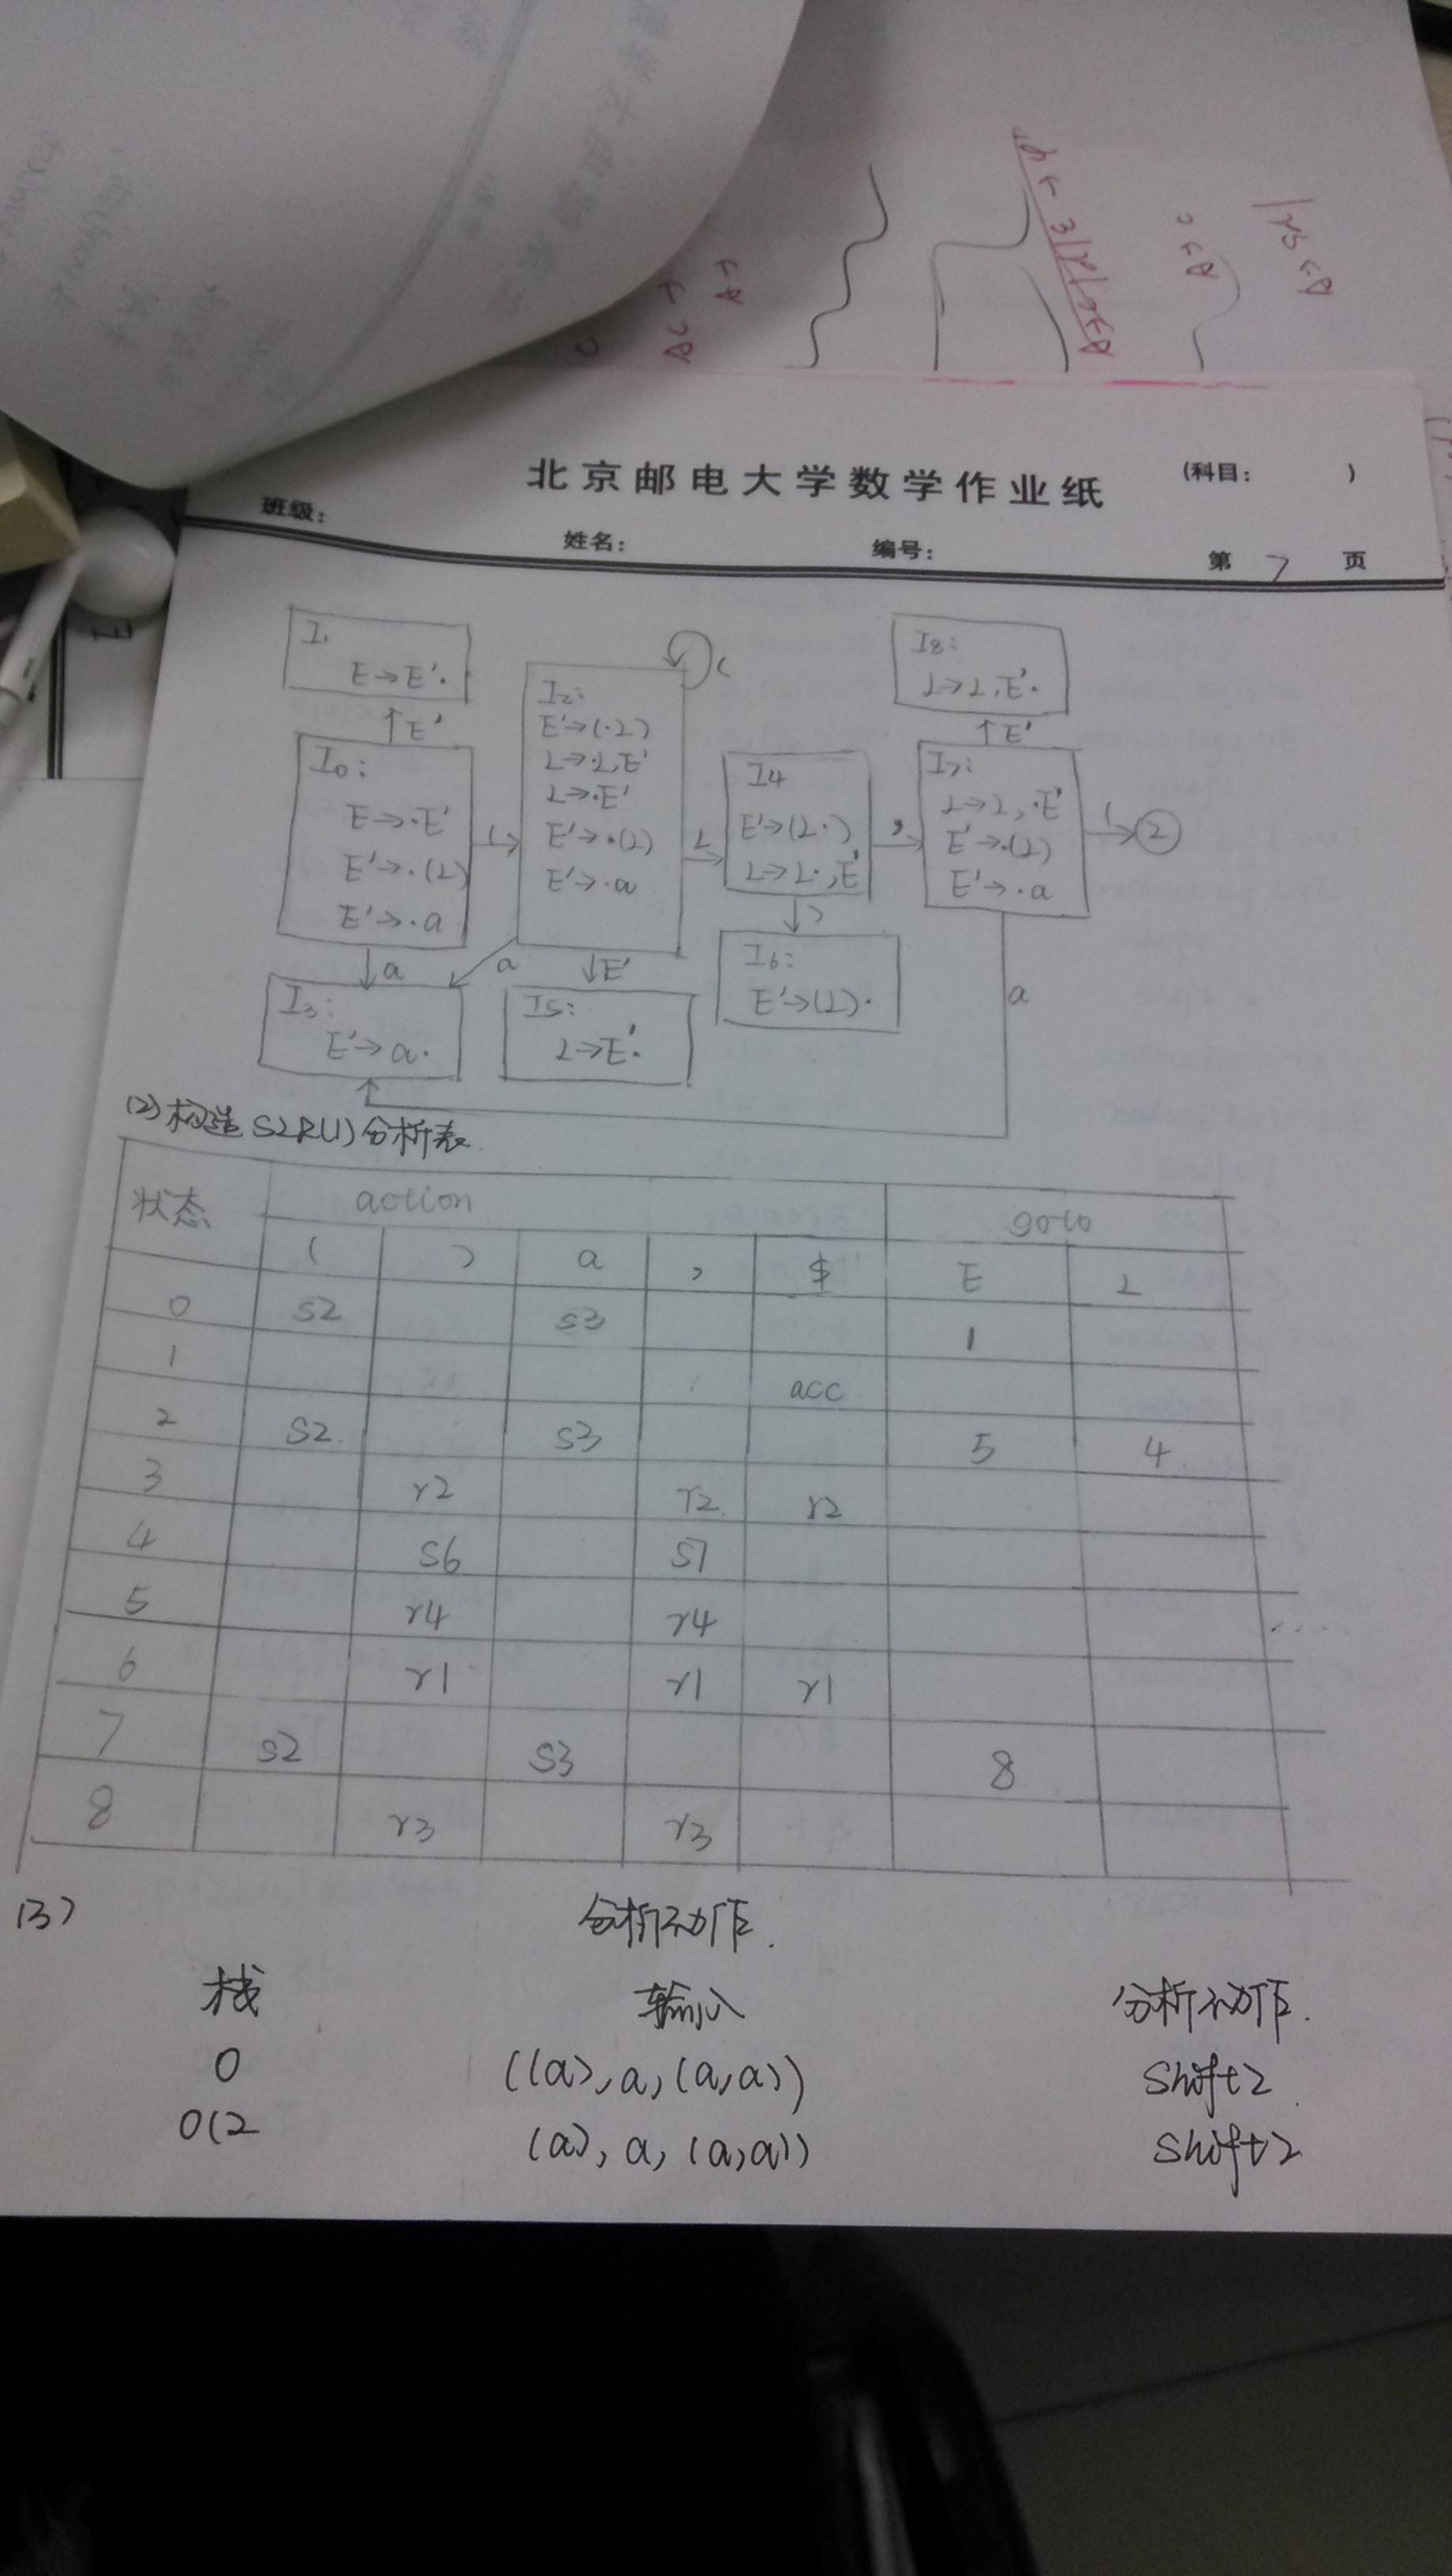 北京邮电大学数学作业纸
(科目: )
班级:
姓名:
编号:
第 7 页
I1
E→E'·
E'
I0:
E→·E'
E'→·(L)
E'→·a
(
a
I2:
E'→(·L)
L→·L,E'
L→·E'
E'→·(L)
E'→·a
(
L
a
E'
I3:
E'→a·
I5:
L→E'·
I4
E'→(L·)
L→L·,E'
,
)
I6:
E'→(L)·
I8:
L→L,E'·
E'
I7:
L→L,·E'
E'→·(L)
E'→·a
(
2
a
(2)构造SLR(1)分析表
状态 action goto
( ) a , $ E L
0 s2 s3 1
1 acc
2 s2 s3 5 4
3 r2 r2 r2
4 s6 s7
5 r4 r4
6 r1 r1 r1
7 s2 s3 8
8 r3 r3
(3) 分析动作.
栈 输入 分析动作.
0 ((a),a,(a,a)) Shift2
0(2 (a),a,(a,a)) Shift2